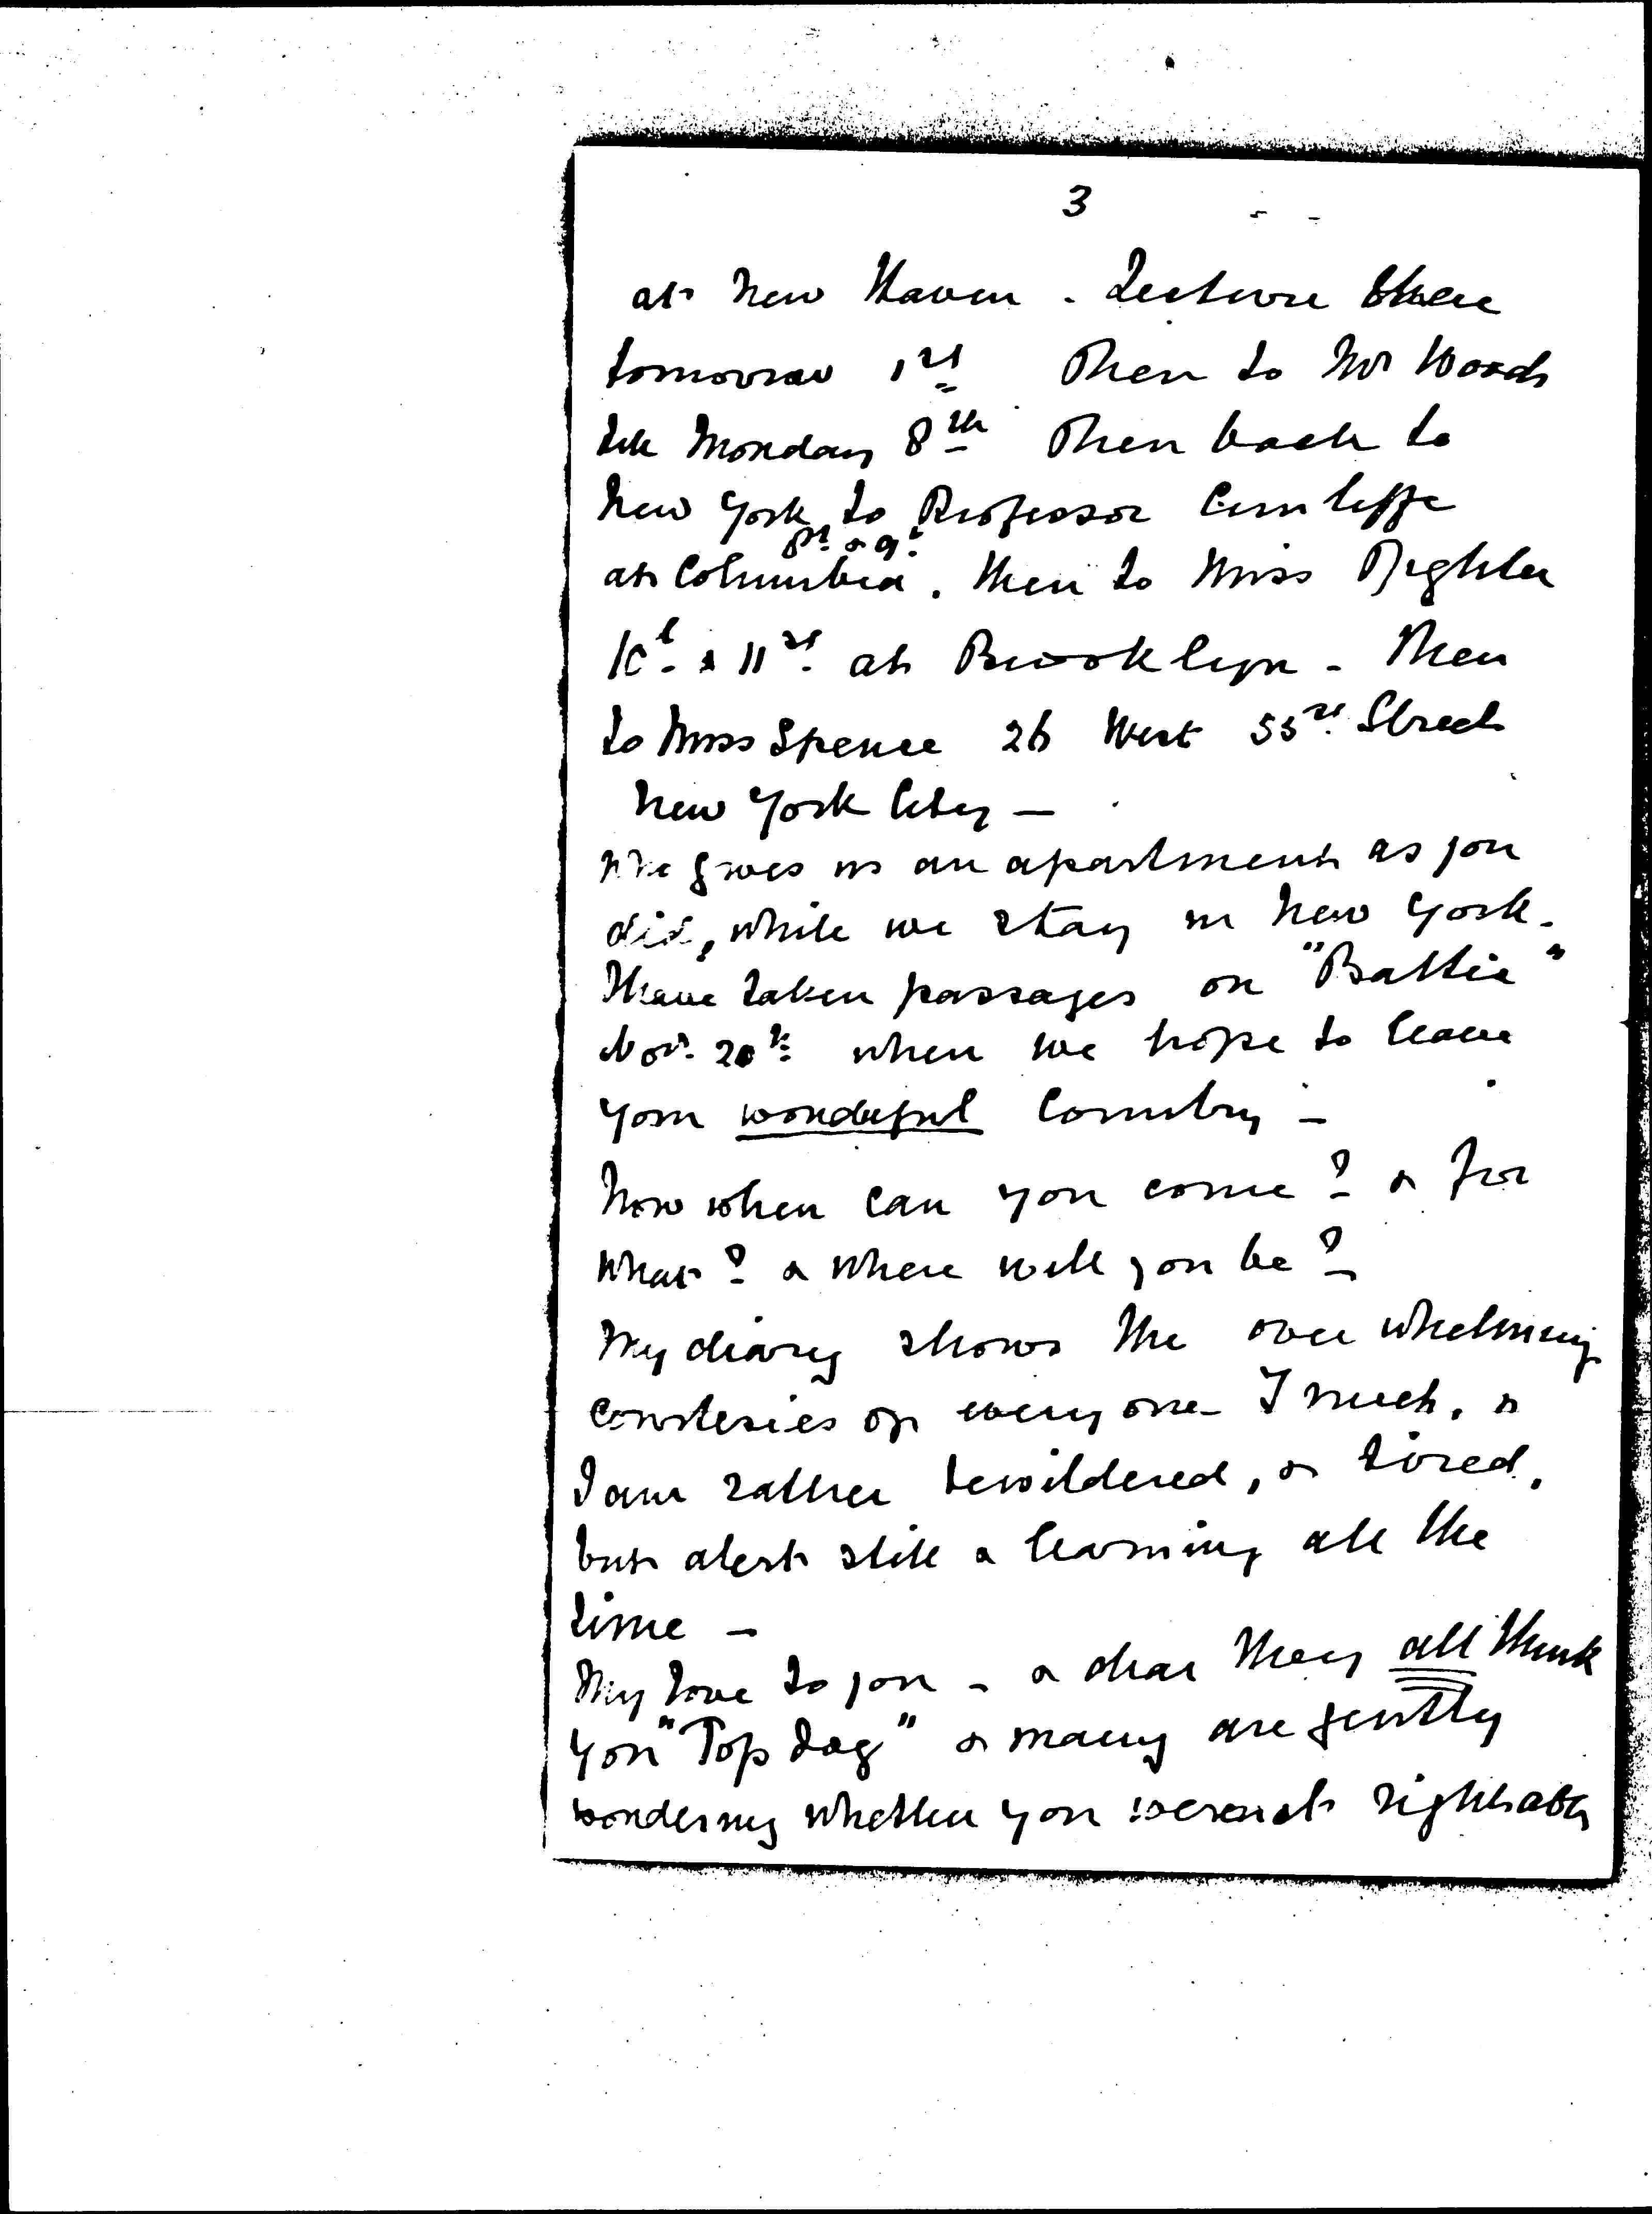 3
at New Haven. Lecture there
tomorrow 1st Then to Mr Woods
till Monday 8th Then back to
New York to Professor Cunliffe
8th & 9th
at Columbia. then to Miss
10t & 11th at Brooklyn - Then
to Miss Spence 26 West 55th Street
New York City —
who gives us an apartment as you
did, while we stay in New York.
I have taken passages on "Baltic"
Nov. 20th when we hope to leave
your wonderful Country -
Now when can you come? & for
what? & where will you be?
My diary shows the over whelming
courtesies of every one I meet, &
I am rather bewildered, & tired,
but alert still & learning all the
time -
My love to you - & dear they all think
you "Top dog" & many are gently
wondering whether you weren't right